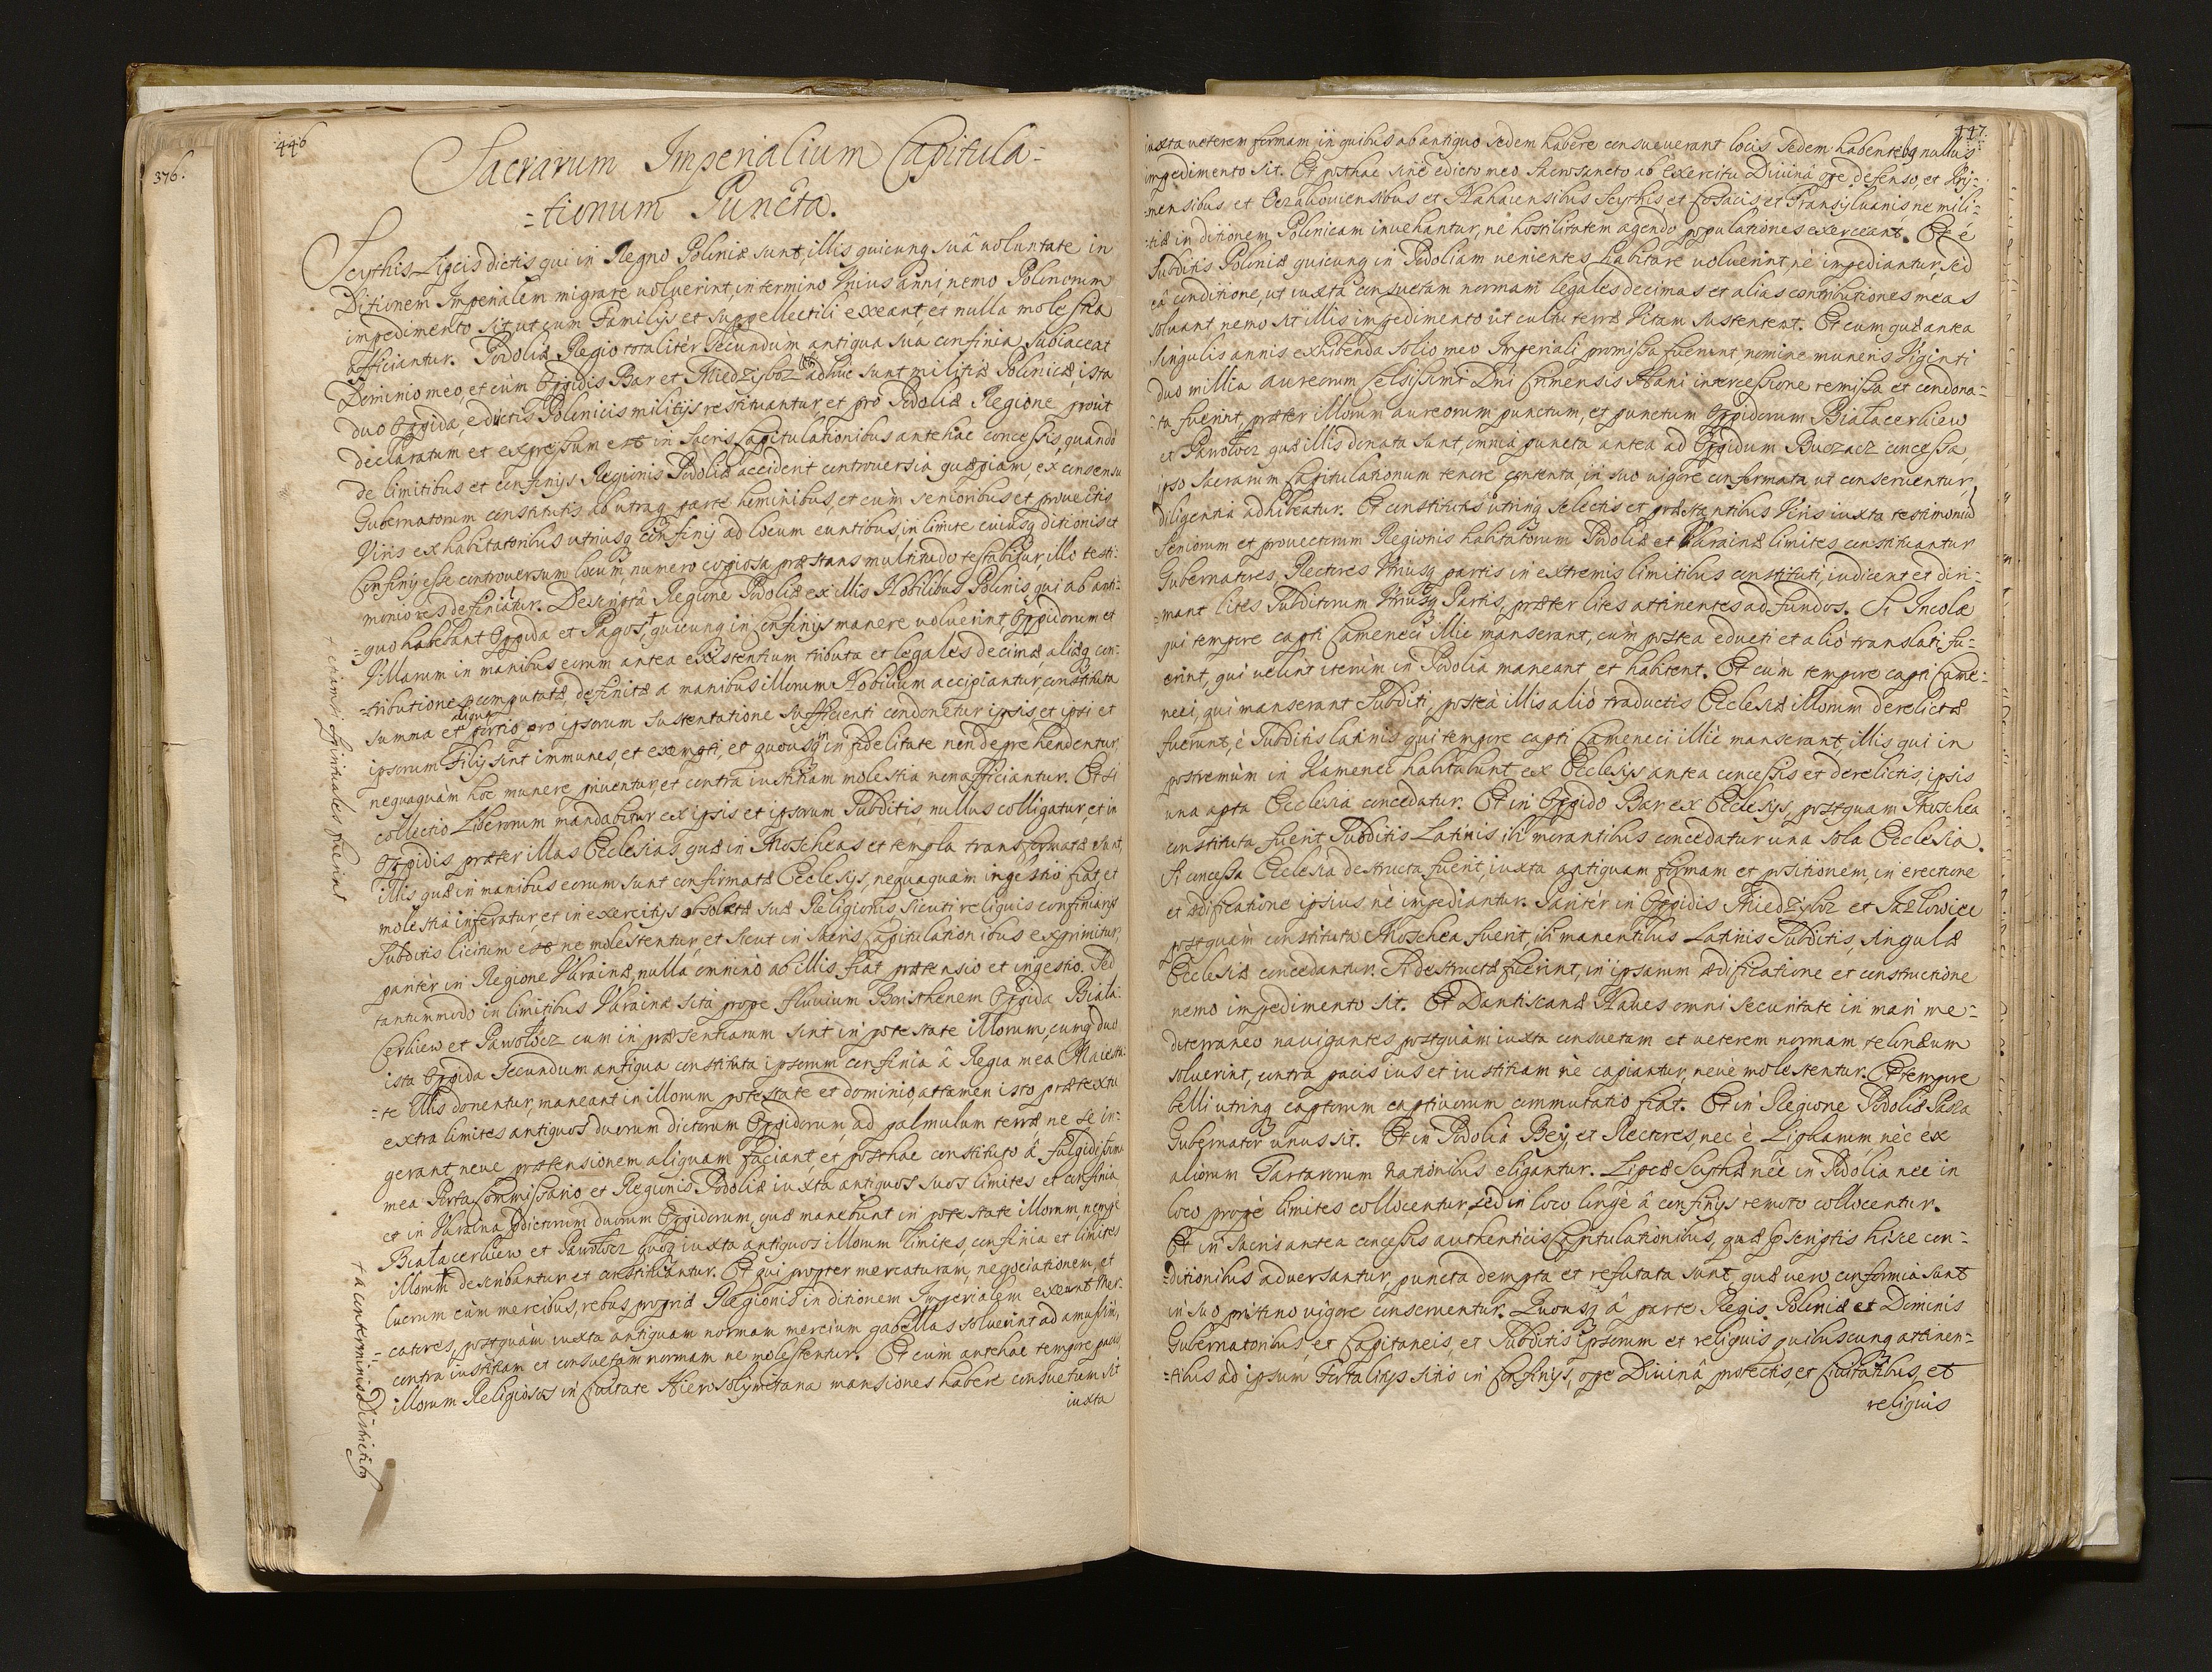 376.
446
Sacrarum Imperialium Capitula=
=tionum Puncta.
Scythis Lipcis dictis qui in Regno Poloniæ sunt, illis quicunq suâ voluntate in
Ditionem Imperialem migrare voluerint, in termino Unius anni, nemo Polonorum
impedimento sit, ut cum Familijs et suppellectili exeant, et nulla molestia
afficiantur. Podoliæ Regio totaliter secundùm antiqua sua confinia subiaceat
Dominio meo, et cùm Oppidis Bar et Miedzyboz adhuc sunt militiæ Polonicæ, ista
duo Oppida, eductis Polonicis militijs restituantur, et pro Podoliæ Regione, prout
declaratum et expressum est in Sacris Capitulationibus antehac concessis, quandò
de limitibus et confinijs Regionis Podoliæ acciderit controversia quæpiam, ex consensu
Gubernatorum constitutis ab utraq parte hominibus, et cùm senioribus et provectis
Viris ex habitatoribus utriusq confinij ad locum euntibus, in limite cuiusq ditionis et
Confinij esse controversum locum, numero copiosa præstans multitudo testabitur, illo testi:
moniores definiatur. Descriptâ Regione Podoliæ ex illis Nobilibus Polonis, qui ab anti=
=quo habebant Oppida et Pagos, + quicunq in Confinijs manere voluerint, Oppidorum et
Villarum in manibus eorum antea existentium tributa et legales decimæ, aliæq con-
=tributiones computatæ, definitæ a manibus illorum Nobilium accipiantur, constituta
summa et aliqua portio pro ipsorum sustentatione sufficienti condonetur ipsis, et ipsi et
ipsorum Filij sint immunes, et exempti, et quousq in fidelitate non deprehendentur,
nequaquàm hoc munere priventur, et contra iustitiam molestia non afficiantur. Et si
collectio Liberorum mandabitur ex ipsis et ipsorum Subditis, nullus colligatur, et in
Oppidis præter illas Ecclesias, quæ in Moscheas et templa transformatæ sunt,
illis quæ in manibus eorum sunt confirmatæ Ecclesijs, nequaquam ingestio fiat, et
molestia inferatur, et in exercitijs obsoletæ suæ Religionis, sicuti reliquis confiniarijs
Subditis licitum est ne molestentur, et sicut in Sacris Capitulationibus exprimitur,
pariter in Regione Ukrainæ, nulla omninò ab illis fiat prætensio et ingestio. Sed
tantummodo in limitibus Ukrainæ sita prope fluvium Boristhenem Oppida Biala:
Cerkiew et Pawołocz cum in præsentiarum sint in potestate illorum, cumq duo
ista Oppida secundum antiqua constituta ipsorum confinia â Regia mea Maiesta:
=te illis donentur, maneant in illorum potestate et dominio, attamen isto prætextu
extra limites antiquos duorum dictorum Oppidorum, ad palmulum terræ ne se in=
gerant neve prætensionem aliquam faciant, et posthac constituto â fulgidissima
mea Porta Commissario et Regionis Podoliæ iuxta antiquos suos limites et confinia,
et in Ukraina pdictorum duorum Oppidorum, quæ manebunt in potestate illorum, nempè
Białacerkiew et Pawołocz quoq iuxta antiquos illorum limites, confinia et limites
illorum + describantur et constituantur. Et qui propter mercaturam, negociationem, et
lucrum cùm mercibus, rebus propriæ Regionis in ditionem Imperialem exeunt Mer-
=catores, postquàm iuxta antiquam normam mercium gabellas solverint ad amussim,
contra iustitiam et consuetam normam ne molestentur. Et cùm antehac tempore pacis,
illorum Religiosos in Civitate Hierosolymitana mansiones habere consuetum sit
iuxta
+ etiamsi Spirituales fuerint
+ a conterminis Districtibq
447.
iuxta veterem formam in quibus ab antiquo sedem habere consueverant locis sedem habentibq nullus
impedimento sit. Et posthac sine edicto meo Sacrosancto ab exercitu Divinâ ope defenso, et Kry=
=mensibus et Oczakoviensibus et Nahaiensibus Scythis et Cosacis et Transylvanis ne mili=
=tiæ in ditionem Polonicam invehantur, nè hostilitatem agendo populationes exerceant. Et é
Subditis Poloniæ quicunq in Podoliam venientes habitare voluerint, nè impediantur, sed
eâ conditione, ut iuxta consuetam normam legales decimas et alias contributiones meas
solvant, nemo sit illis impedimento ut cultu terræ Vitam sustentent. Et cum quæ antea
singulis annis exhibenda solio meo Imperiali promissa fuerunt nomine muneris Viginti
duo millia aureorum Celsissimi Dni Crimensis Hani intercessione remissa et condona=
=ta fuerint, præter illorum aureorum punctum, et punctum Oppidorum Białacerkiew
et Pawołocz quæ illis donata sunt, omnia puncta antea ad Oppidum Buczacz concessa
ipso Sacrarum Capitulationum tenore contenta, in suo vigore confirmata ut conserventur,
diligentia adhibeatur. Et constitutis utrinq selectis et præstantibus Viris iuxta testimoniũ
Seniorum et provectorum Regionis habitatorum Podoliæ et Ukrainæ limites constituantur
Gubernatores, Rectores Utriusq partis in extremis limitibus constituti, iudicent et diri=
=mant lites Subditorum Utriusq Partis, præter lites attinentes ad fundos. Si Incolæ
qui tempore capti Cameneci illic manserant, cùm postea educti et aliò translati fu=
erint, qui velint iterùm in Podolia maneant et habitent. Et cùm tempore capti Came=
neci, qui manserant Subditi, posteà illis aliò traductis Ecclesiæ illorum derelictæ
fuerunt, è Subditis latinis qui tempore capti Cameneci illic manserant, illis qui in
postremùm in Kamenec habitabunt, ex Ecclesijs antea concessis et derelictis, ipsis
una apta Ecclesia concedatur. Et in Oppido Bar ex Ecclesijs, postquam Moschea
constituta fuerit, Subditis Latinis ibi morantibus concedatur una sola Ecclesia.
Si concessa Ecclesia destructa fuerit, iuxta antiquam formam et positionem, in erectione
et ædificatione ipsius nè impediantur. Paritèr in Oppidis Miedzyboz et Jazłowiec
postquàm constituta Moschea fuerit, ibi manentibus Latinis Subditis, singulæ
Ecclesiæ concedantur. Si destructæ fuerint, in ipsarum ædificatione et constructione
nemo impedimento sit. Et Dantiscanæ Naves omni securitate in mari me=
diterraneo navigantes postquàm iuxta consuetam et veterem normam telonæum
solverint, contra pacis ius et iustitiam nè capiantur, neve molestentur. Et tempore
belli utrinq captorum captivorum commutatio fiat. Et in Regione Podoliæ Passa
Gubernator unus sit. Et in Podolia Beij et Rectores, nec è Lipkarum, nèc ex
aliorum Tartarorum nationibus eligantur. Lipcæ Scythæ nec in Podolia nec in
loco propè limites collocentur, sed in loco longè â confinijs remoto collocentur.
Et in Sacris antea concessis authenticis Capitulationibus, quæ pscriptis hisce con=
=ditionibus adversantur, puncta dempta et refutata sunt, quæ vero conformia sunt
in suo pristino vigore conserventur. Quousq â parte Regis Poloniæ et Dominis
Gubernatoribus, et Capitaneis, et Subditis ipsorum et reliquis quibuscunq attinen=
=tibus ad ipsum Fortalitijs sitis in Confinijs, ope Divinâ protectis, et Civitatibus, et
reliquis